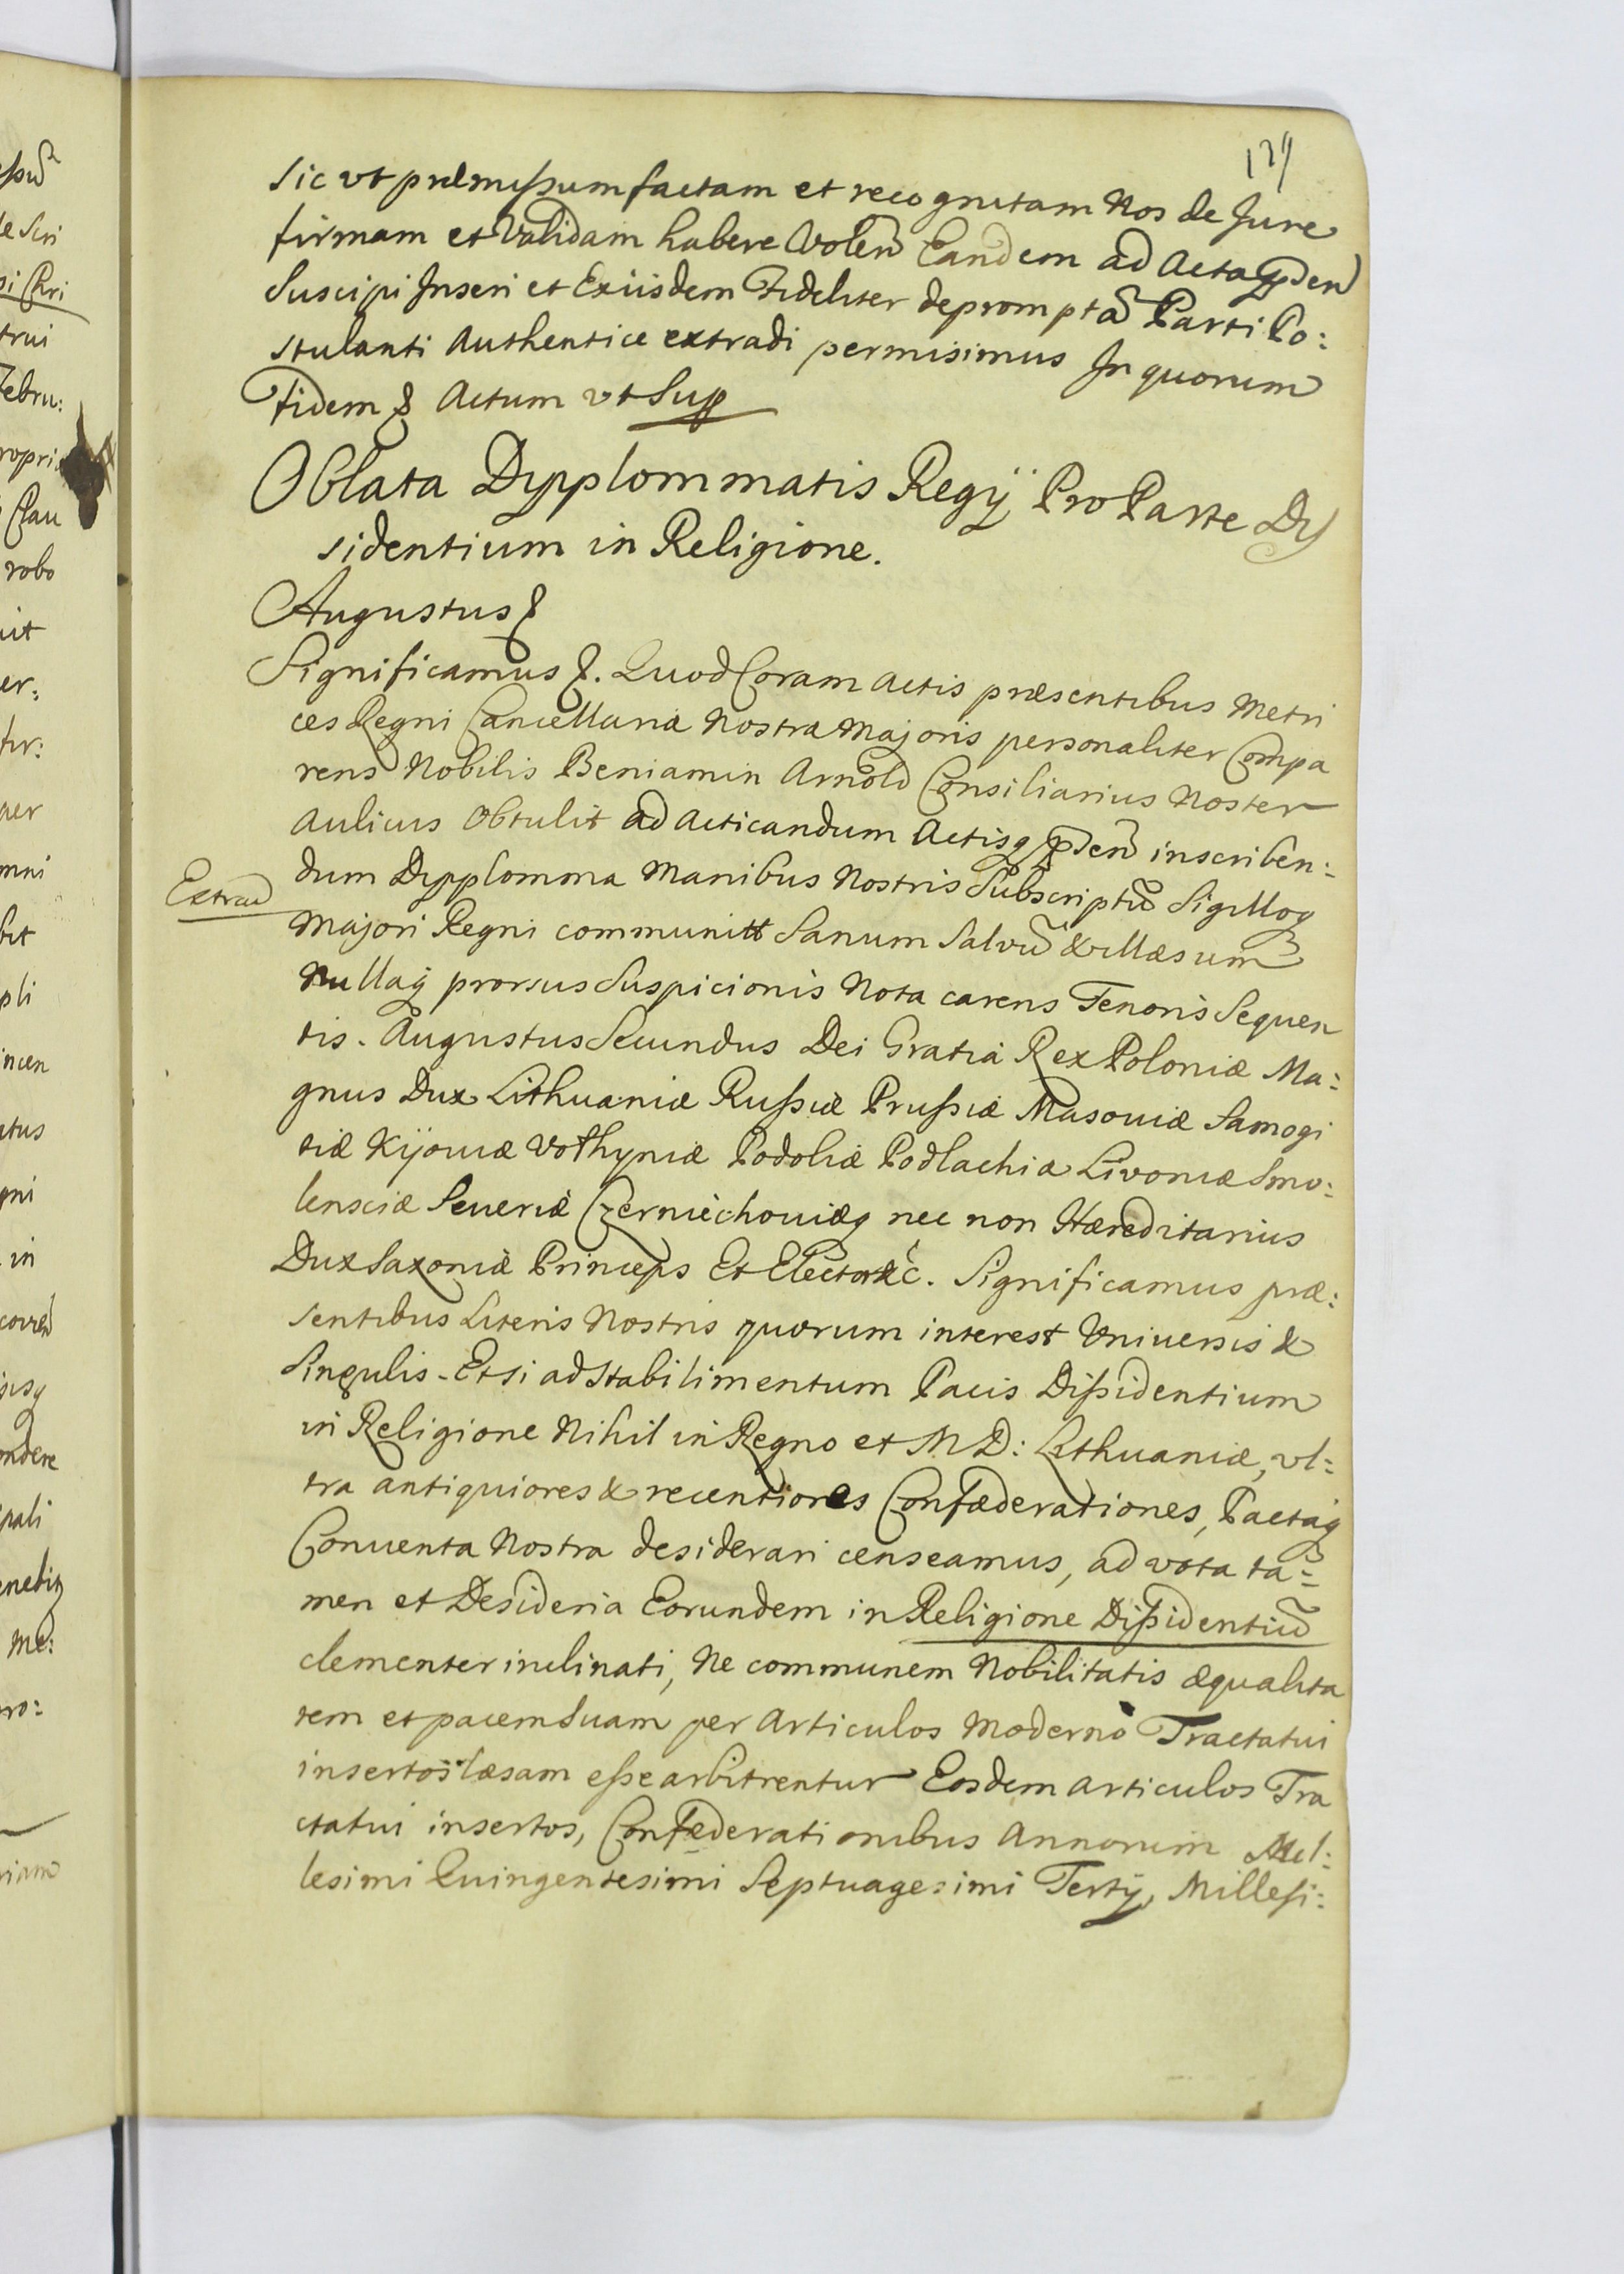 sic vt præmissum factam et recognitam Nos de Jure
firmam et Validam habere Volen̄ Eandem ad Acta p̄den
Suscipi Inseri et Exiisdem Fideliter depromptā Parti Po:
stulanti Authentice extradi permisimus In quorum
Fidem & Actum vt Sup
Oblata Dypplommatis Regÿ Pro Parte Dys
sidentium in Religione.
Augustus &
Significamus &. Quod Coram actis præsentibus Metri
ces Regni Cancellariæ Nostræ Majoris personaliter Compa
rens Nobilis Beniamin Arnold Consiliarius Noster
Aulicus Obtulit ad acticandum Actisq p̄den̄ inscriben:
Extrad
dum Dypplomma Manibus Nostris Subscriptū Sigilloq
Majori Regni communitt Sanum Salvū & illæsum
Nullaq prorsus Suspicionis Nota carens Tenoris Sequen
tis. Augustus Secundus Dei Gratia Rex Poloniæ Ma:
gnus Dux Lithuaniæ Russiæ Prussiæ Masouiæ Samogi
tiæ Kijouiæ Vothyniæ Podoliæ Podlachiæ Livoniæ Smo:
lensciæ Seueriæ Czerniechouiæq nec non Hæreditarius
Dux Saxoniæ Princeps Et Elector &c. Significamus præ:
sentibus Literis Nostris quorum interest Vniuersis &
Singulis. Etsi ad Stabilimentum Pacis Dissidentium
in Religione Nihil in Regno et M D: Lithuaniæ, vl:
tra antiquiores & recentiores Confæderationes, Pactaq
Conuenta Nostra desiderari censeamus, ad vota ta:
men et Desideria Eorundem in Religione Dissidentiū
clementer inclinati, Ne communem Nobilitatis æqualita
tem et pacem Suam per Articulos Moderno Tractatui
insertos læsam esse arbitrentur Eosdem articulos Tra
ctatui insertos, Confæderationibus Annorum Mil:
lesimi Quingentesimi Septuagesimi Tertÿ, Millesi: